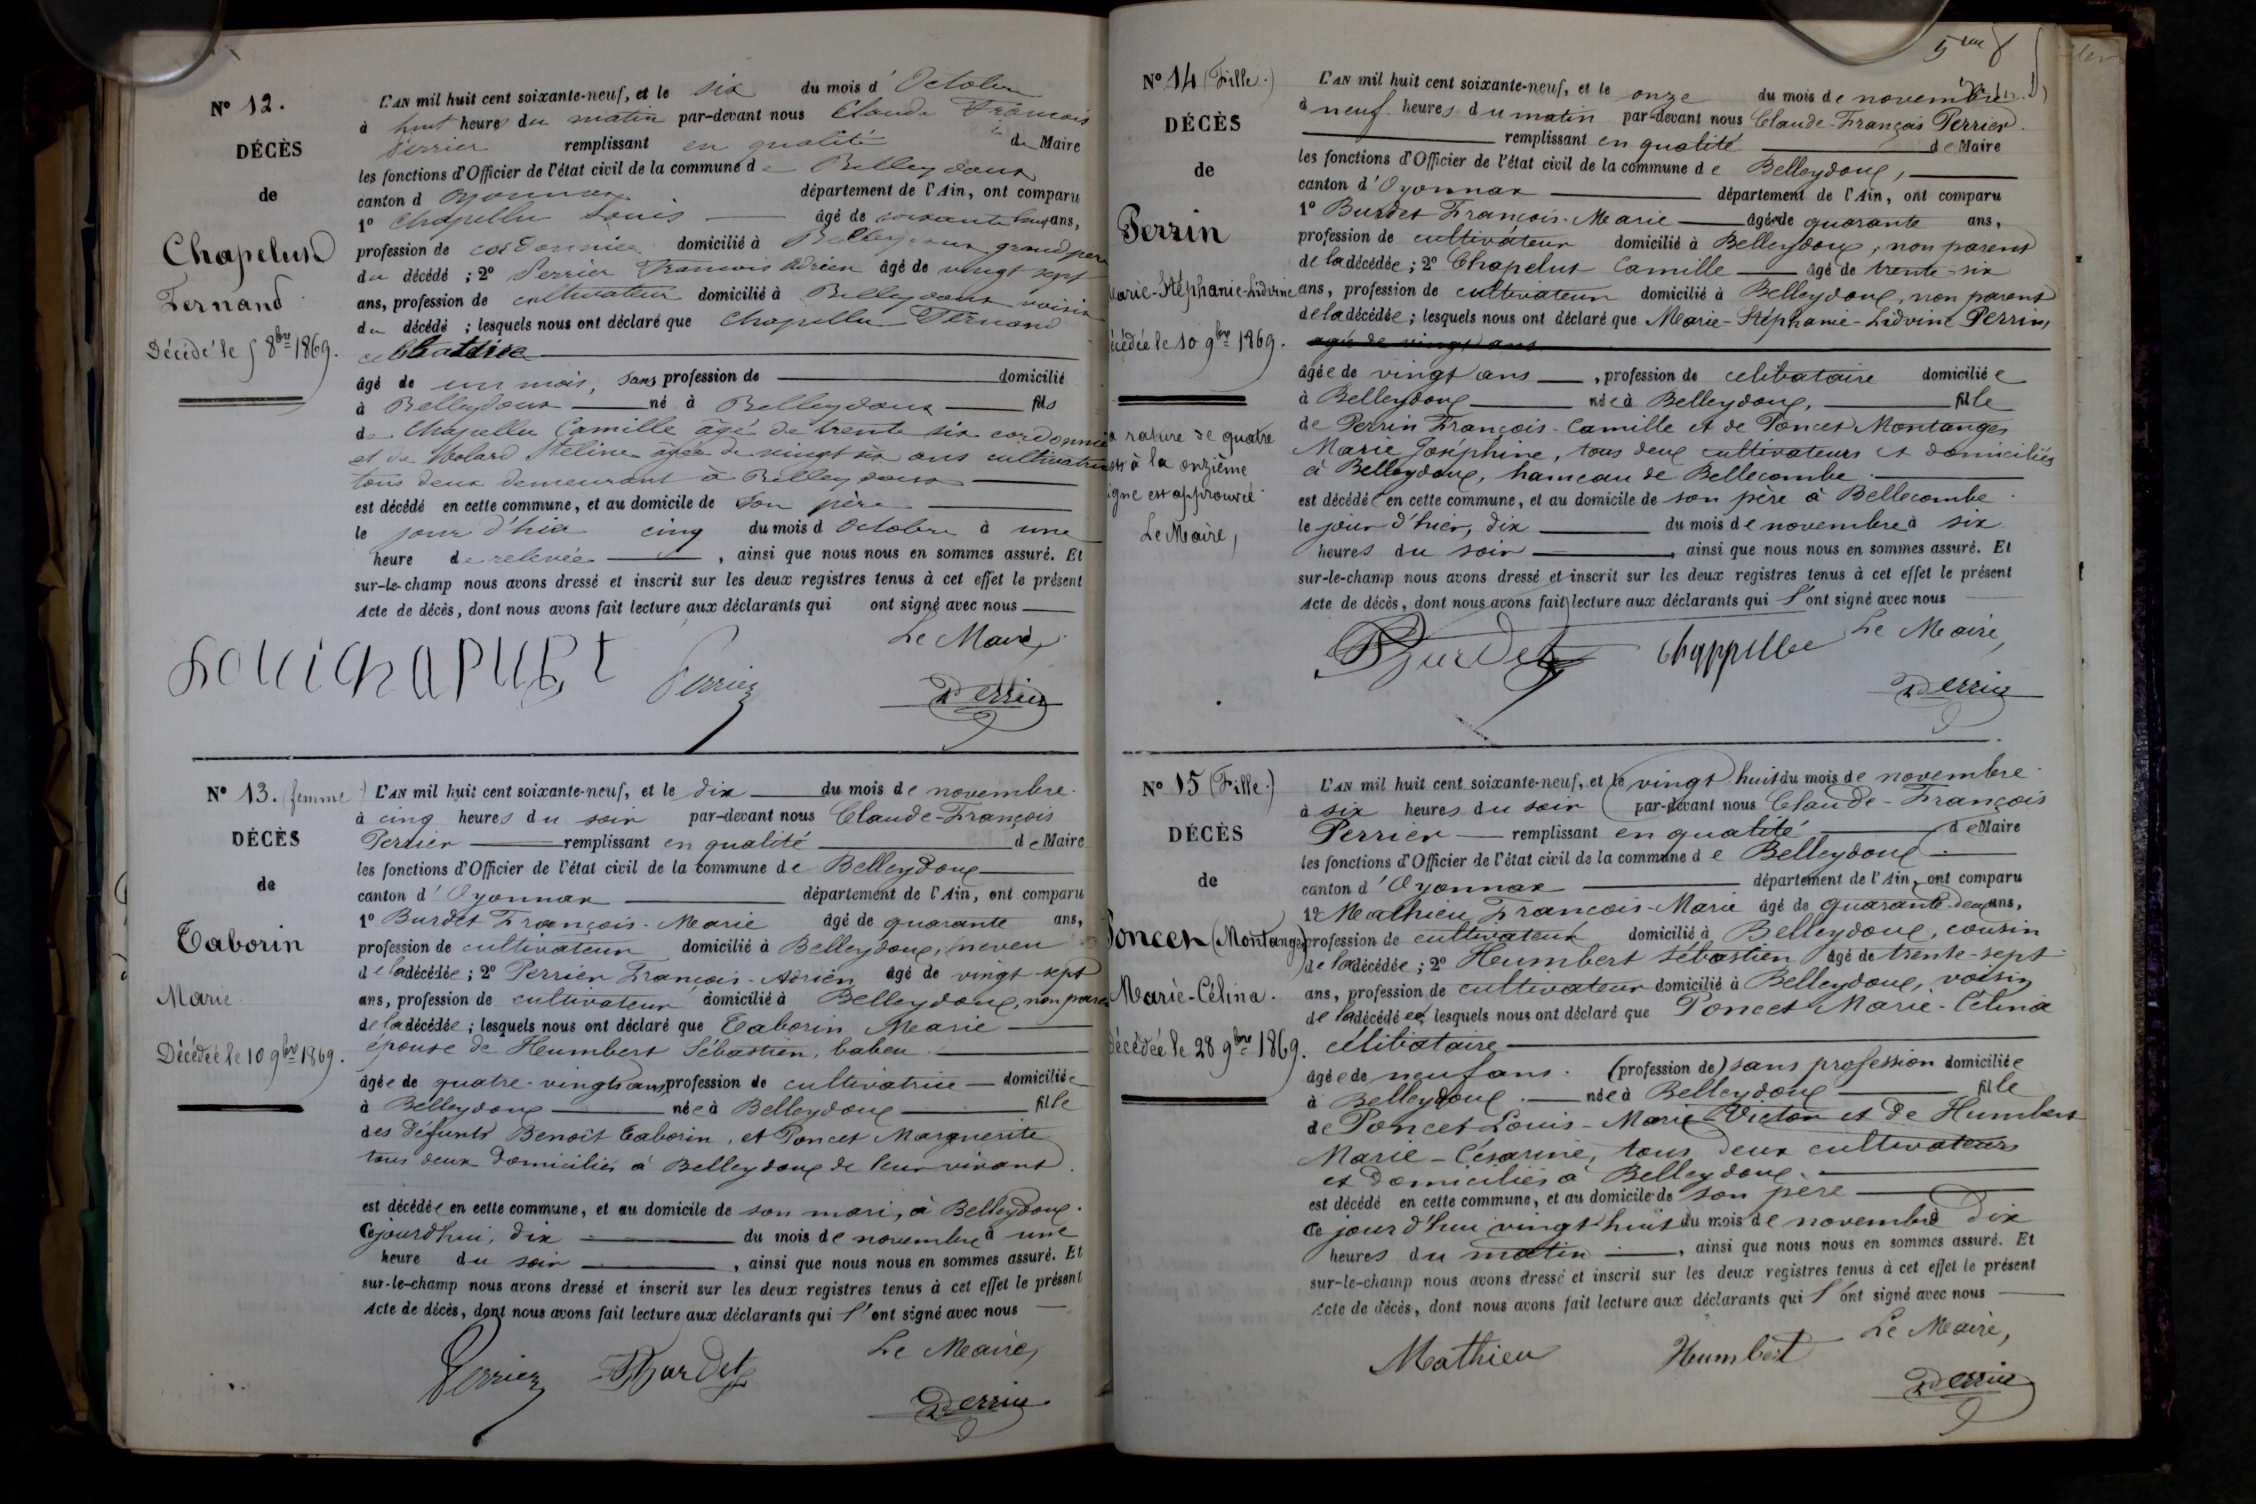 N° 12.
DÉCÈS
de
Chapelus
Fernand
Décédé le 5 8bre 1869.
L'AN mil huit cent soixante-neuf, et le six du mois d'Octobre
à huit heures du matin par-devant nous Claude François
Perrier remplissant en qualité de Maire
les fonctions d'Officier de l'état civil de la commune de Belleydoux
canton d Oyonnax département de l'Ain, ont comparu
1° Chapellu Louis âgé de soixante huit ans,
profession de cordonnier domicilié à Belleydoux grand père
du décédé ; 2° Perrier Francois Adrien âgé de vingt sept
ans, profession de cultivateur domicilié à Belleydoux voisin
du décédé ; lesquels nous ont déclaré que Chapellu Fernand
celibataire
âgé de un mois, sans profession de domicilié
à Belleydoux né à Belleydoux fils
de Chapellu Camille âgé de trente six cordonnier
et de Steline âgée de vingt six ans cultivatrice
tous deux demeurant à Belleydoux
est décédé en cette commune, et au domicile de son père
le jour d'hier cinq du mois d Octobre à une
heure de relevée , ainsi que nous nous en sommes assuré. Et
sur-le-champ nous avons dressé et inscrit sur les deux registres tenus à cet effet le présent
Acte de décès, dont nous avons fait lecture aux déclarants qui ont signé avec nous
Le Maire
Perrier
Perrier
N° 13. (femme)
DÉCÈS
de
Taborin
Marie
Décédée le 10 9bre 1869.
L'AN mil huit cent soixante-neuf, et le dix du mois de novembre
à cinq heures du soir par-devant nous Claude-François
Perrier remplissant en qualité de Maire
les fonctions d'Officier de l'état civil de la commune de Belleydoux
canton d'Oyonnax département de l'Ain, ont comparu
1° Burdet François-Marie âgé de quarante ans,
profession de cultivateur domicilié à Belleydoux, neveu
de la décédée ; 2° Perrier François-Adrien âgé de vingt-sept
ans, profession de cultivateur domicilié à Belleydoux, non parent
de la décédée ; lesquels nous ont déclaré que Taborin Marie
épouse de Humbert Sébastien,
âgée de quatre-vingts ans, profession de cultivatrice domiciliée
à Belleydoux née à Belleydoux fille
des défunts Benoît Taborin, et Poncet Marguerite
tous deux domiciliés à Belleydoux de leur vivant.
est décédée en cette commune, et au domicile de son mari, à Belleydoux.
Ce jourd'hui, dix du mois de novembre à une
heure du soir , ainsi que nous nous en sommes assuré. Et
sur-le-champ nous avons dressé et inscrit sur les deux registres tenus à cet effet le présent
Acte de décès, dont nous avons fait lecture aux déclarants qui l'ont signé avec nous
Le Maire,
Perrier Burdet
Perrier
N° 14 (Fille.)
DÉCÈS
de
Perrin
Marie-Stéphanie-Lidvine
décédée le 10 9bre 1869.
la rature de quatre
mots à la onzième
ligne est approuvée.
Le Maire,
L'AN mil huit cent soixante-neuf, et le onze du mois de novembre
à neuf heures du matin par-devant nous Claude-François Perrier.
remplissant en qualité de Maire
les fonctions d'Officier de l'état civil de la commune de Belleydoux,
canton d'Oyonnax département de l'Ain, ont comparu
1° Burdet François-Marie âgé de quarante ans,
profession de cultivateur domicilié à Belleydoux, non parent
de la décédée ; 2° Chapelut Camille âgé de trente-six
ans, profession de cultivateur domicilié à Belleydoux, non parent
de la décédée ; lesquels nous ont déclaré que Marie-Stéphanie-Lidvine Perrin,
agée de vingt ans
âgée de vingt ans , profession de célibataire domiciliée
à Belleydoux née à Belleydoux, fille
de Perrin François-Camille et de Poncet Montange
Marie Joséphine, tous deux cultivateurs et domiciliés
à Belleydoux, hameau de Bellecombe.
est décédée en cette commune, et au domicile de son père à Bellecombe.
le jour d'hier, dix du mois de novembre à six
heures du soir , ainsi que nous nous en sommes assuré. Et
sur-le-champ nous avons dressé et inscrit sur les deux registres tenus à cet effet le présent
Acte de décès, dont nous avons fait lecture aux déclarants qui l'ont signé avec nous
Le Maire,
Burdet Chappellu
Perrier
N° 15 (Fille.)
DÉCÈS
de
Poncet (Montange)
Marie-Célina.
décédée le 28 9bre 1869.
L'AN mil huit cent soixante-neuf, et le vingt huit du mois de novembre
à six heures du soir par-devant nous Claude-François
Perrier remplissant en qualité de Maire
les fonctions d'Officier de l'état civil de la commune de Belleydoux
canton d'Oyonnax département de l'Ain, ont comparu
1° Mathieu François-Marie âgé de quarante-deux ans,
profession de cultivateur domicilié à Belleydoux, cousin
de la décédée ; 2° Humbert Sébastien âgé de trente-sept
ans, profession de cultivateur domicilié à Belleydoux, voisin
de la décédée, lesquels nous ont déclaré que Poncet Marie-Célina
célibataire
âgée de neuf ans. (profession de) sans profession domiciliée
à Belleydoux. née à Belleydoux fille
de Poncet Louis-Marie-Victor et de Humbert
Marie-Césarine, tous deux cultivateurs
et domiciliés à Belleydoux.
est décédé en cette commune, et au domicile de son père
Ce jourd'hui vingt-huit du mois de novembre à dix
heures du matin , ainsi que nous nous en sommes assuré. Et
sur-le-champ nous avons dressé et inscrit sur les deux registres tenus à cet effet le présent
Acte de décès, dont nous avons fait lecture aux déclarants qui l'ont signé avec nous
Le Maire,
Mathieu Humbert
Perrier